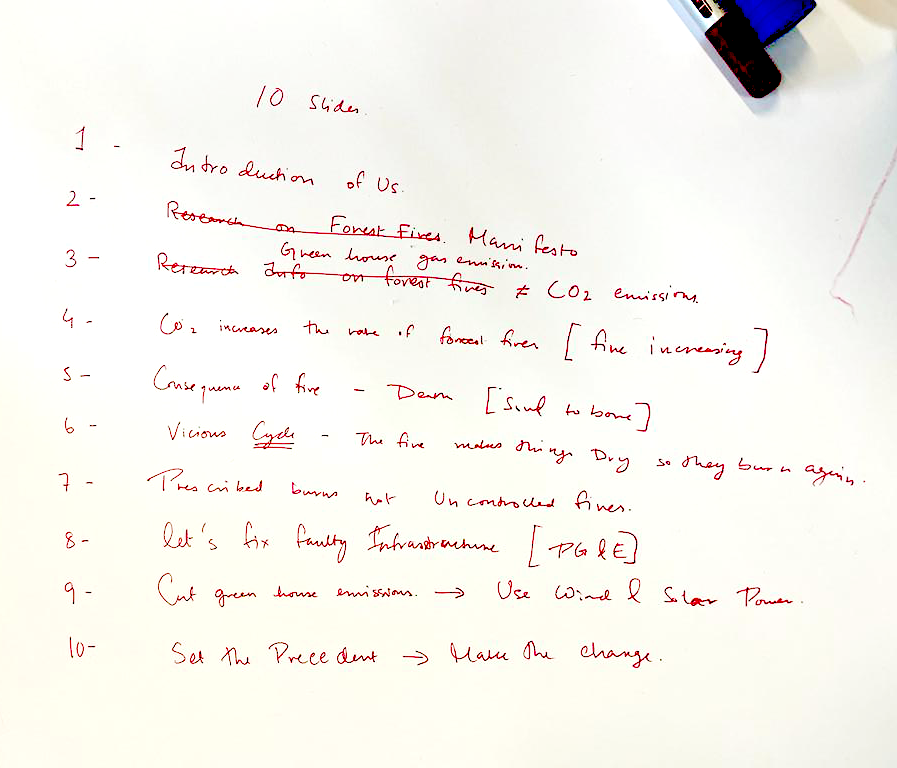 10 Slides.
1 - Introduction of Us.
2 - Research on Forest Fires. Manifesto
Green house gas emission.
3 - Research Info on forest fires ≠ CO2 emissions.
4 - CO2 increases the rate of forest fires [fire increasing]
5 - Consequence of fire - [ to ]
6 - Vicious Cycle - The fire makes things Dry so they burn again.
7 - Prescribed burns not Uncontrolled fires.
8 - Let's fix faulty Infrastructure [PG&E]
9 - Cut green house emissions. → Use Wind & Solar Power.
10 - Set the Precedent → Make the change.